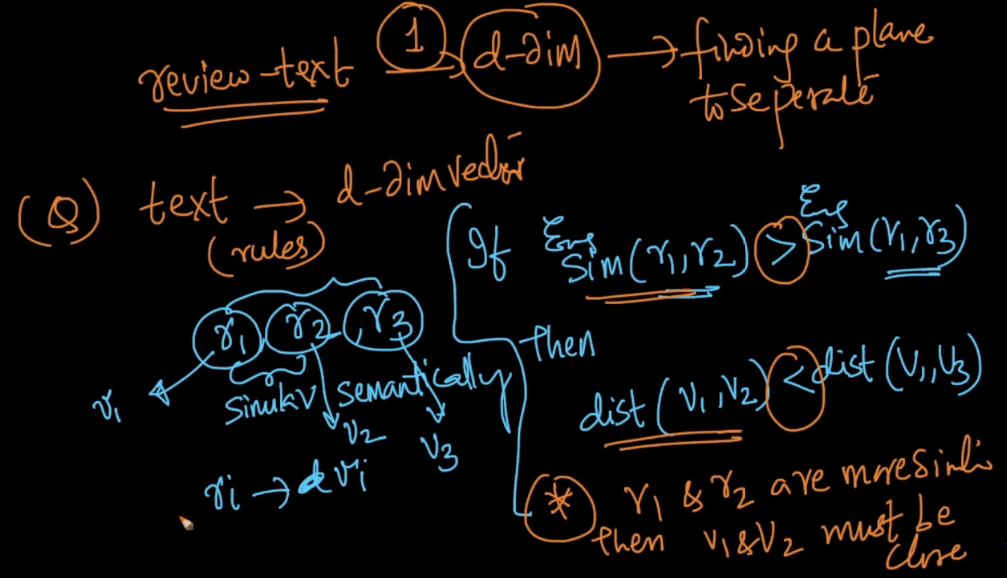 review text ① → d-dim → finding a plane
to seperate
(Q) text → d-dim vector
(rules)
r1 r2, r3
similar semantically
v1
v2
v3
ri → vi
If Eng Sim(r1,r2) > Eng Sim(r1,r3)
then
dist(v1,v2) < dist(v1,v3)
* r1 & r2 are more
then v1&v2 must be
close